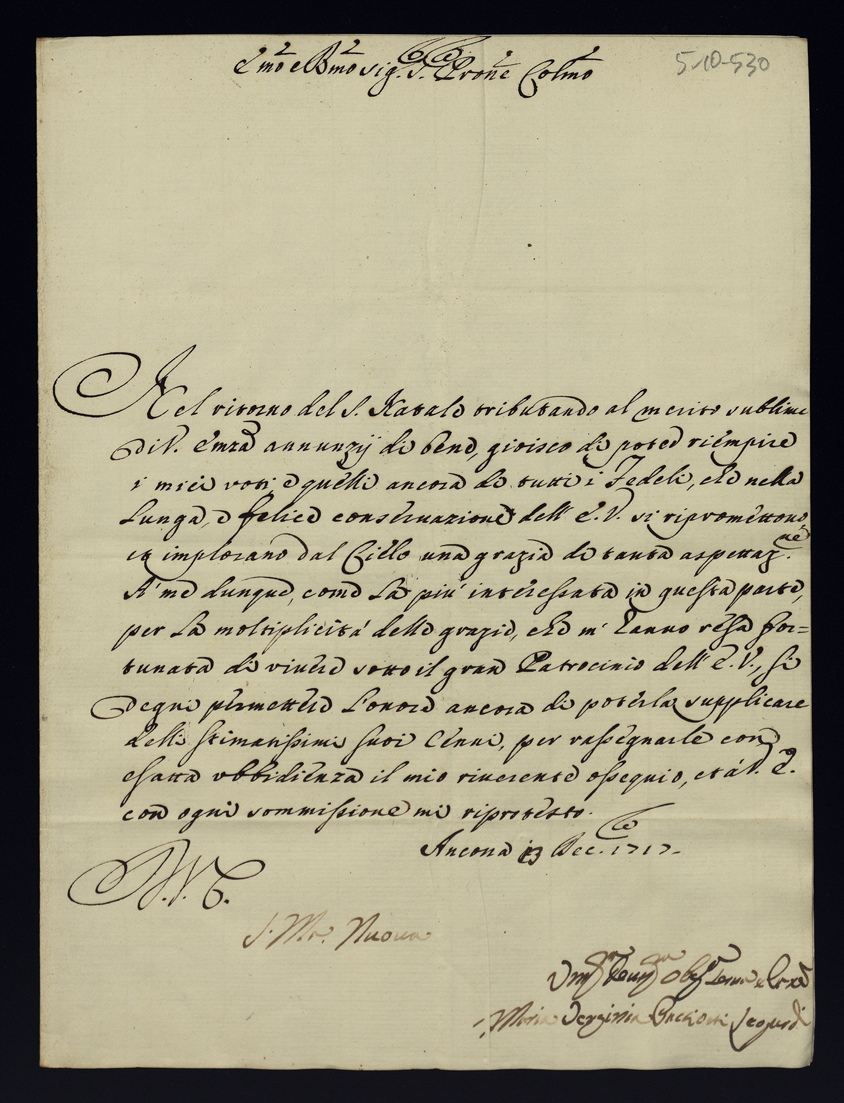 Em.o e Rmo sig. S. Prone Colmo
5-10-530
Nel ritorno del S. Natale tributando al merito sublime
di V. Emza annunzij di bene, gioisco di poter riempire
i miei voti, e quelli ancora di tutti i Fedeli, che nella
Lunga, e felice conservazione dell' E.V. si ripromettono,
et implorano dal Cielo una grazia di tanta aspettaz.ne
A' me dunque, come La più interessata in questa parte,
per La moltiplicità delle grazie, che m' hanno resa for=
tunata di vivere sotto il gran Patrocinio dell' E.V., si
degni permettere L'onore ancora di poterla supplicare
delli stimatissimi suoi Cenni, per rassegnarle con
esatta ubbidienza il mio riverente ossequio, et à V. E.
con ogni sommissione mi riprotesto.
Ancona 13 Dec.re 1717.
S. Ma. Nuova
Maria Verginia